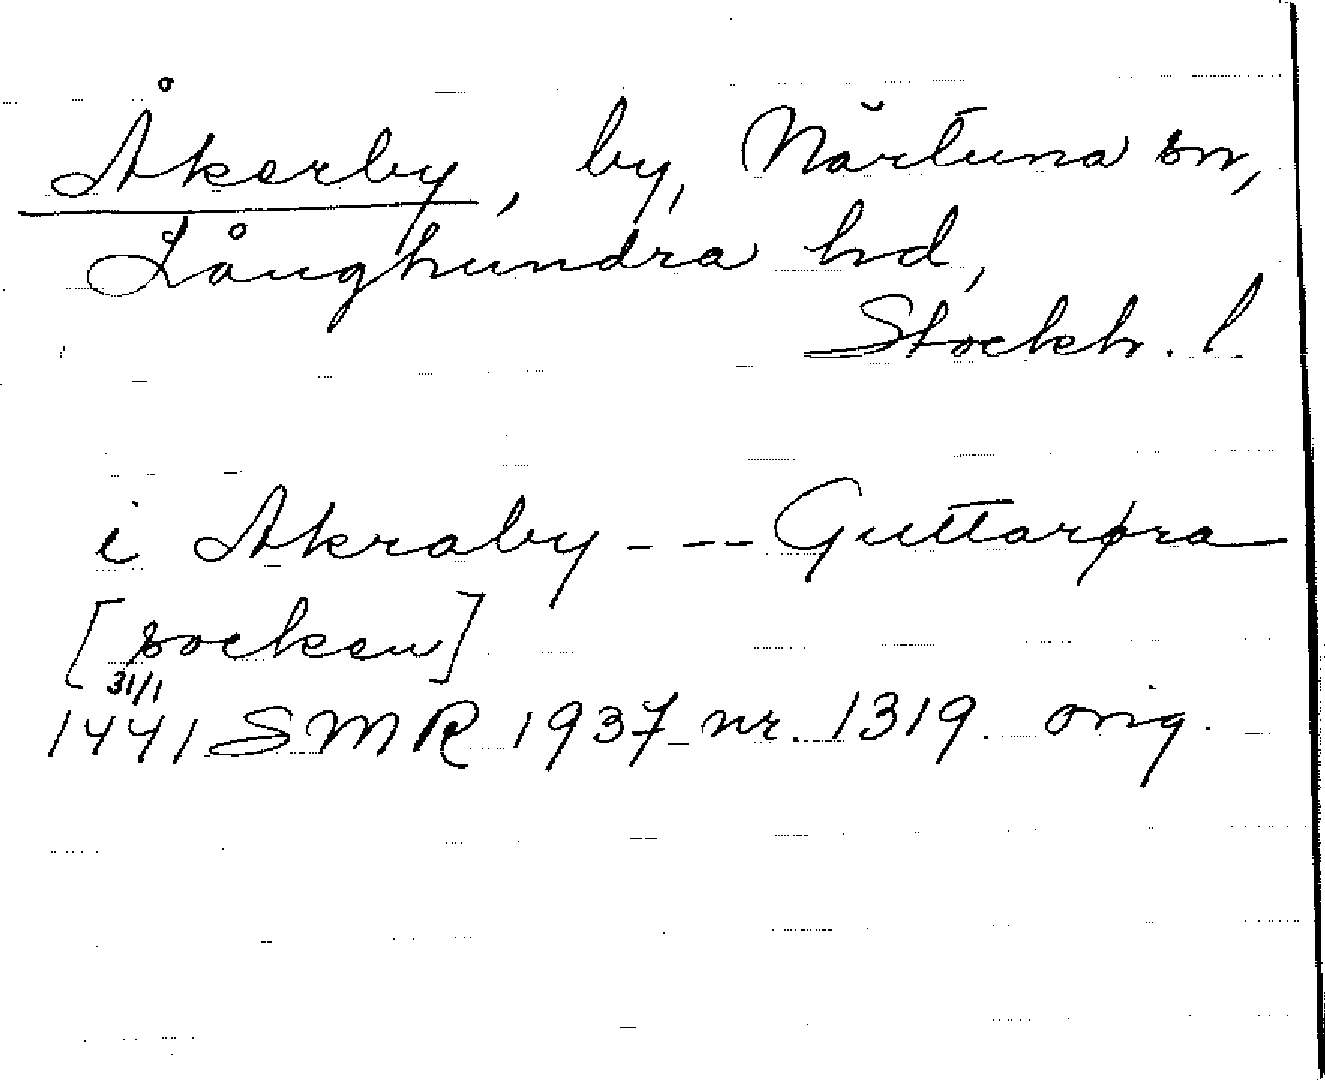 Åkerby, by, Närtuna sn,
Långhundra hd,
Stockh. l.
i Akraby - -- Guttarþra
[socken]
31/1
1441 SMR 1937 nr. 1319. orig.